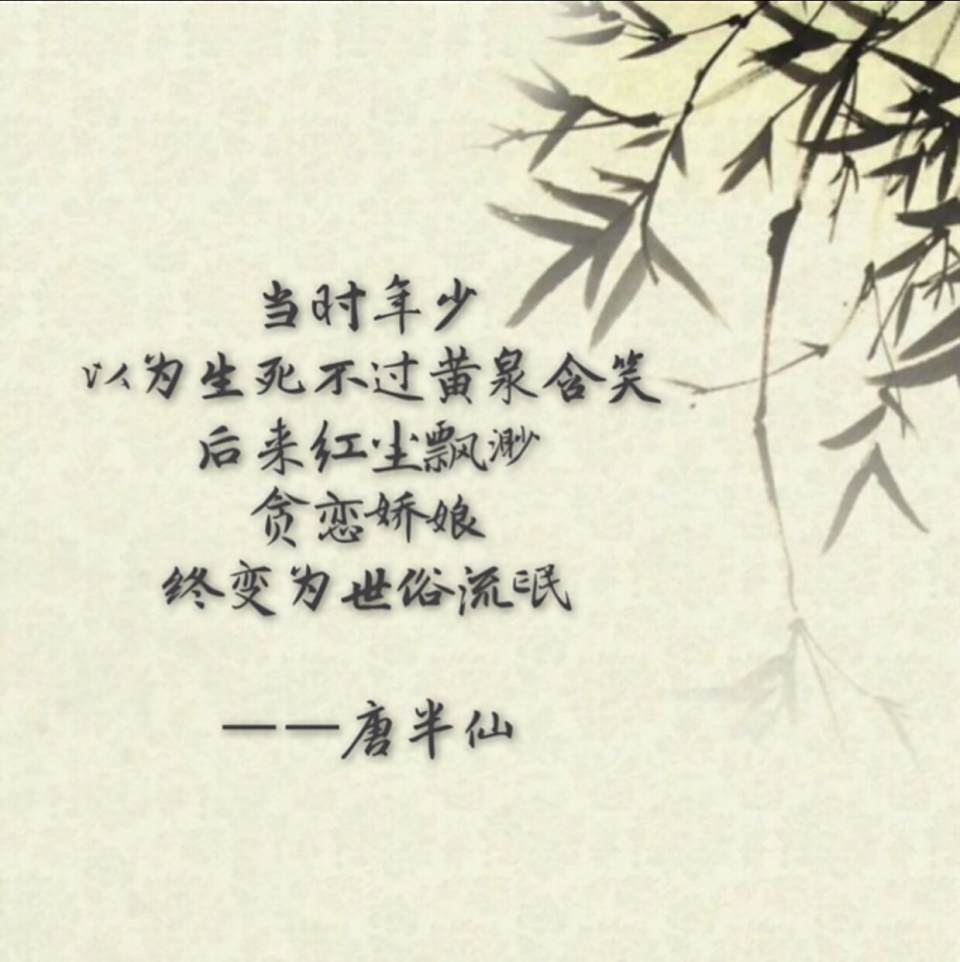 当时年少
以为生死不过黄泉含笑
后来红尘飘渺
贪恋娇娘
终变为世俗流氓
——唐半仙